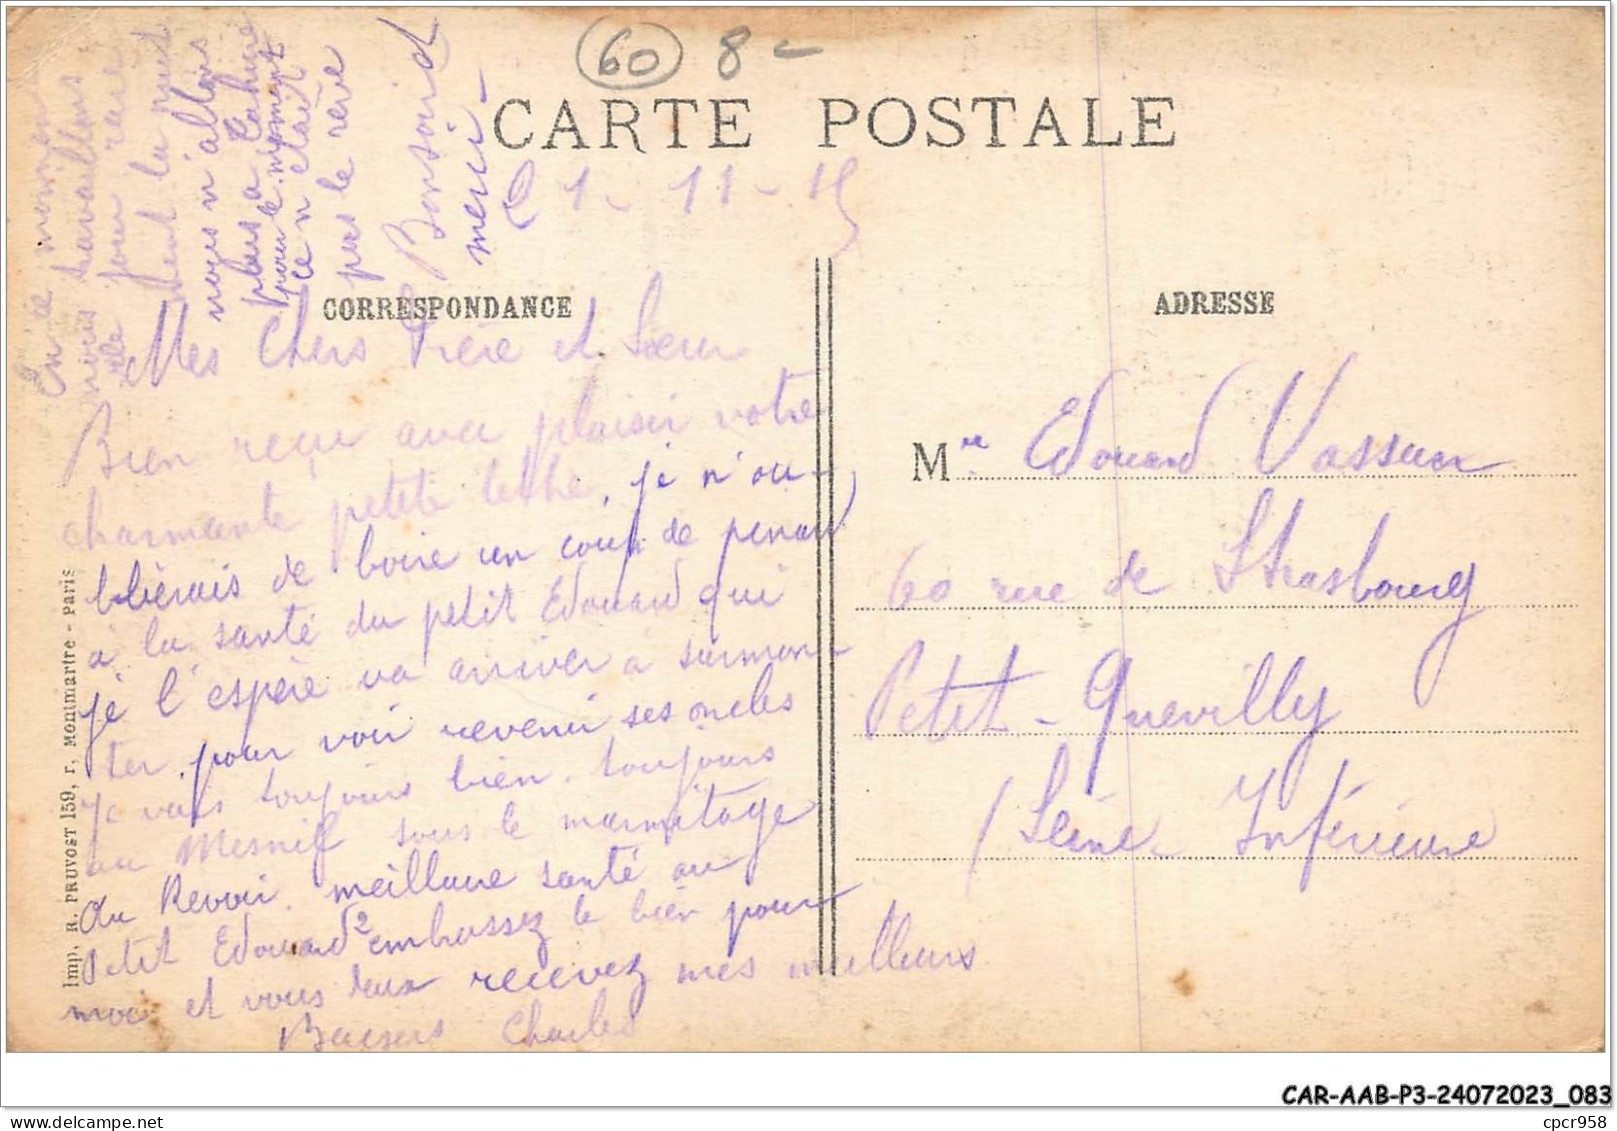 60 8 -
CARTE POSTALE
1 - 11 - 15
CORRESPONDANCE
ADRESSE
Mes Chers Frère et Sœur
Bien reçu avec plaisir votre
charmante petite lettre, je n'ou-
blierais de boire un coup de pinard
à la santé du petit Edouard qui
je l'espère va arriver à surmon-
ter pour voir revenir ses oncles
je vais toujours bien. toujours
au Mesnil sous le marmitage
Au Revoir. meilleure santé au
Petit Edouard 2 embrassez le bien pour
moi et vous deux recevez mes meilleurs
Baisers Charles
En ce moment
nous travaillons
le jour
la nuit
nous n'allons
plus a
pour le moment
ce n'était
pas le rêve
Bonsoir et
merci -
Mre Edouard Vasseur
60 rue de Strasbourg
Petit-Quevilly
(Seine-Inférieure
Imp. R. PRUVOST 159, r. Montmartre - Paris
CAR-AAB-P3-24072023_083
cpcr958